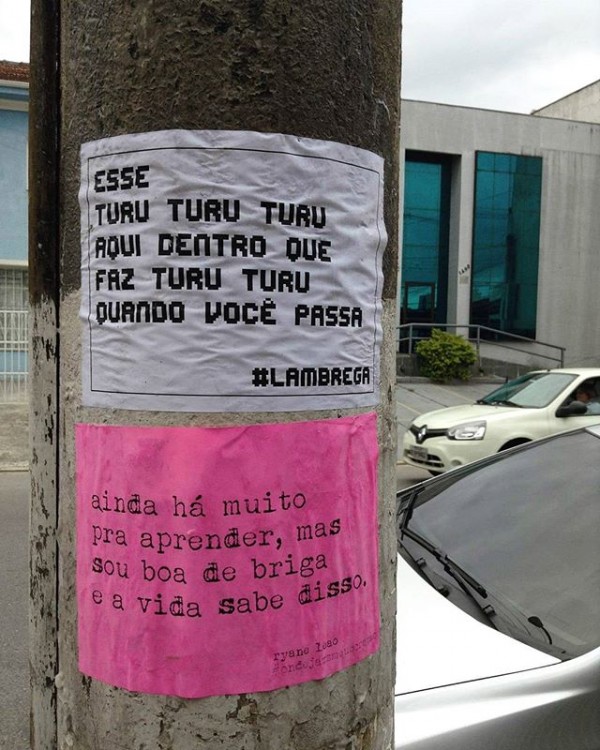 ESSE
TURU TURU TURU
AQUI DENTRO QUE
FAZ TURU TURU
QUANDO VOCÊ PASSA
#LAMBREGA
ainda há muito
pra aprender, mas
sou boa de briga
e a vida sabe disso.
ryane leao